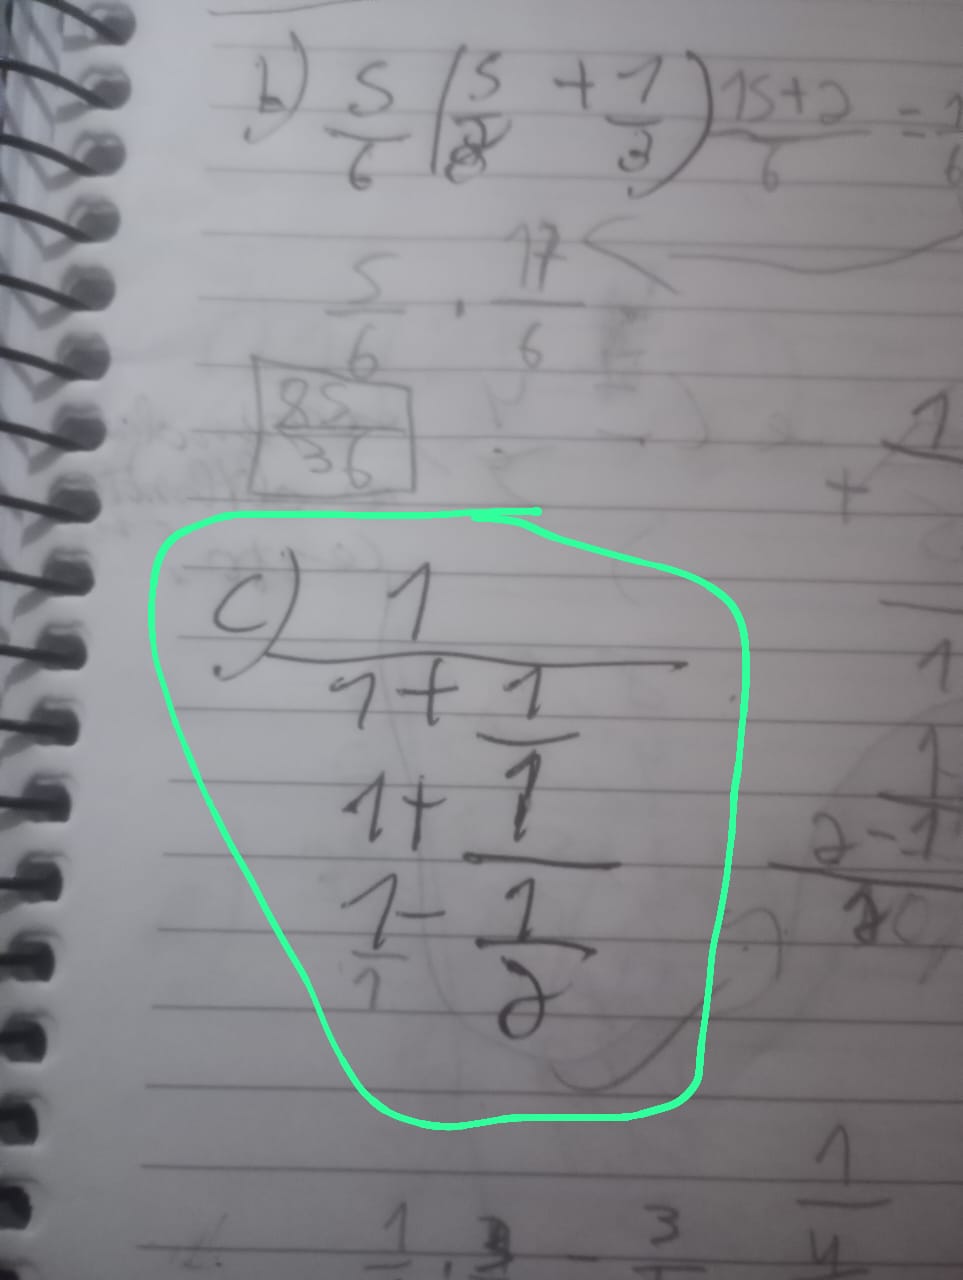 b) 5/6 (5/2 + 1/3) 15+2/6 = 1/6
5/6 . 17/6 =
85/36
1
+
c) 1
1 + 1
1 + 1
1/1 - 1/2
1
1
2 - 1
2
1/4
1 . 3 - 3